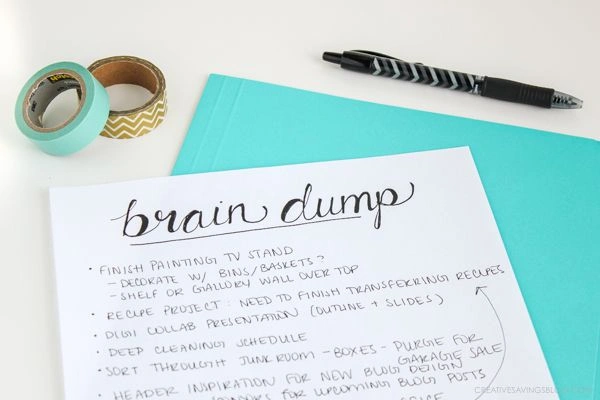 brain dump
• FINISH PAINTING TV STAND
– DECORATE W/ BINS/BASKETS?
– SHELF OR GALLORY WALL OVER TOP
• RECIPE PROJECT: NEED TO FINISH TRANSFERRING RECIPES
• DIGI COLLAB PRESENTATION (OUTLINE + SLIDES)
• DEEP CLEANING SCHEDULE
• SORT THROUGH JUNKROOM – BOXES – PURGE FOR
GARAGE SALE
• HEADER INSPIRATION FOR NEW BLOG DESIGN
FOR UPCOMING BLOG POSTS